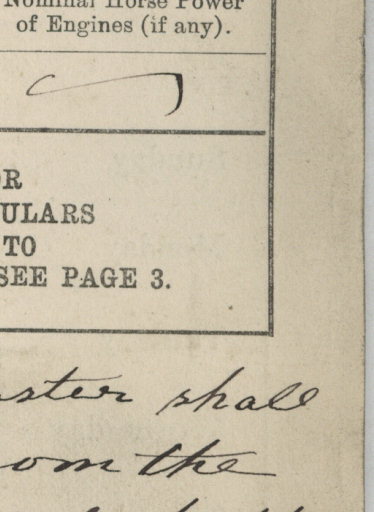 Nominal Horse Power
of Engines (if any).
OR
ULARS
TO
SEE PAGE 3.
aster shall
om the